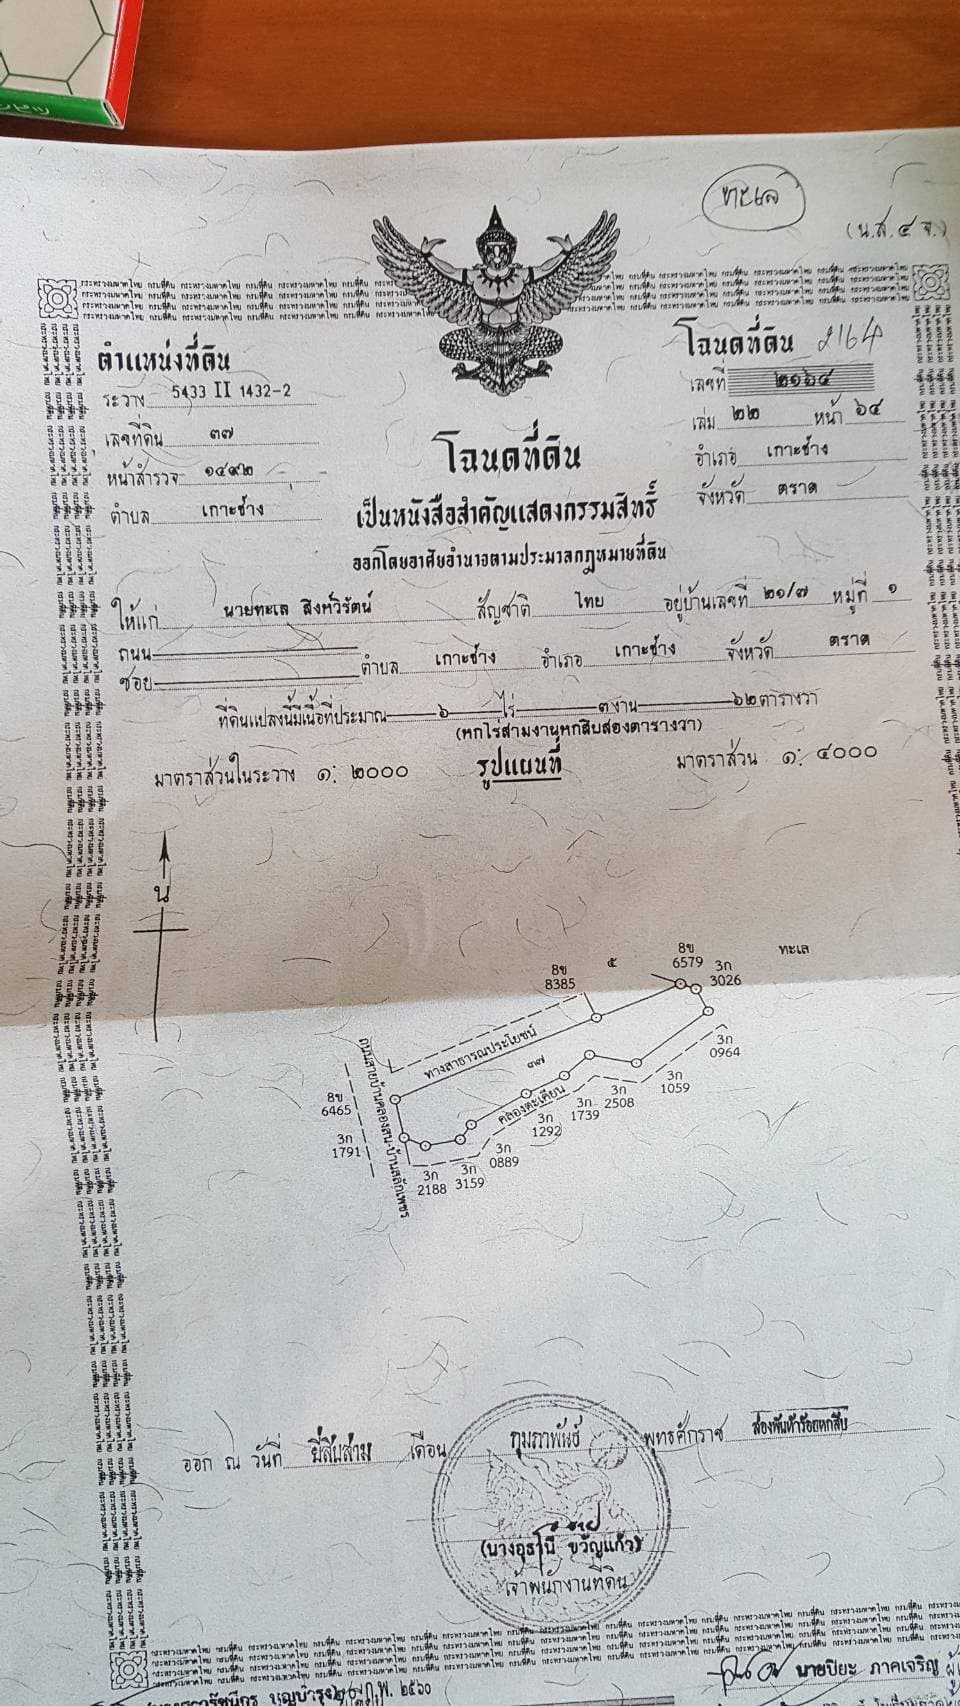 ทะเล
(น.ส.๔ จ.)
ตำแหน่งที่ดิน
ระวาง 5433 II 1432-2
เลขที่ดิน ๓๗
หน้าสำรวจ ๑๔๙๒
ตำบล เกาะช้าง
โฉนดที่ดิน 2164
เลขที่ ๒๑๖๔
เล่ม ๒๒ หน้า ๖๔
อำเภอ เกาะช้าง
จังหวัด ตราด
โฉนดที่ดิน
เป็นหนังสือสำคัญแสดงกรรมสิทธิ์
ออกโดยอาศัยอำนาจตามประมวลกฎหมายที่ดิน
ให้แก่ นายทะเล สิงห์วิรัตน์ สัญชาติ ไทย อยู่บ้านเลขที่ ๒๑/๗ หมู่ที่ ๑
ถนน
ซอย ตำบล เกาะช้าง อำเภอ เกาะช้าง จังหวัด ตราด
ที่ดินแปลงนี้มีเนื้อที่ประมาณ ๖ ไร่ ๓ งาน ๖๒ ตารางวา
(หกไร่สามงานหกสิบสองตารางวา)
มาตราส่วนในระวาง ๑: ๒๐๐๐ รูปแผนที่ มาตราส่วน ๑: ๔๐๐๐
น
ทะเล
8ข
6579
3ก
3026
๕
8ข
8385
3ก
0964
ทางสาธารณประโยชน์
๓๗
3ก
1059
3ก
2508
3ก
1739
คลองตะเคียน
3ก
1292
3ก
0889
3ก
3159
3ก
2188
8ข
6465
3ก
1791
ถนนสายบ้านคลองสน-บ้านสลักเพชร
ออก ณ วันที่ ยี่สิบสาม เดือน กุมภาพันธ์ พุทธศักราช สองพันห้าร้อยหกสิบ
(นางอุธานี ขวัญแก้ว)
เจ้าพนักงานที่ดิน
กระทรวงมหาดไทย กรมที่ดิน
นายปิยะ ภาคเจริญ
บุญบำรุง ก.พ. ๒๕๖๐